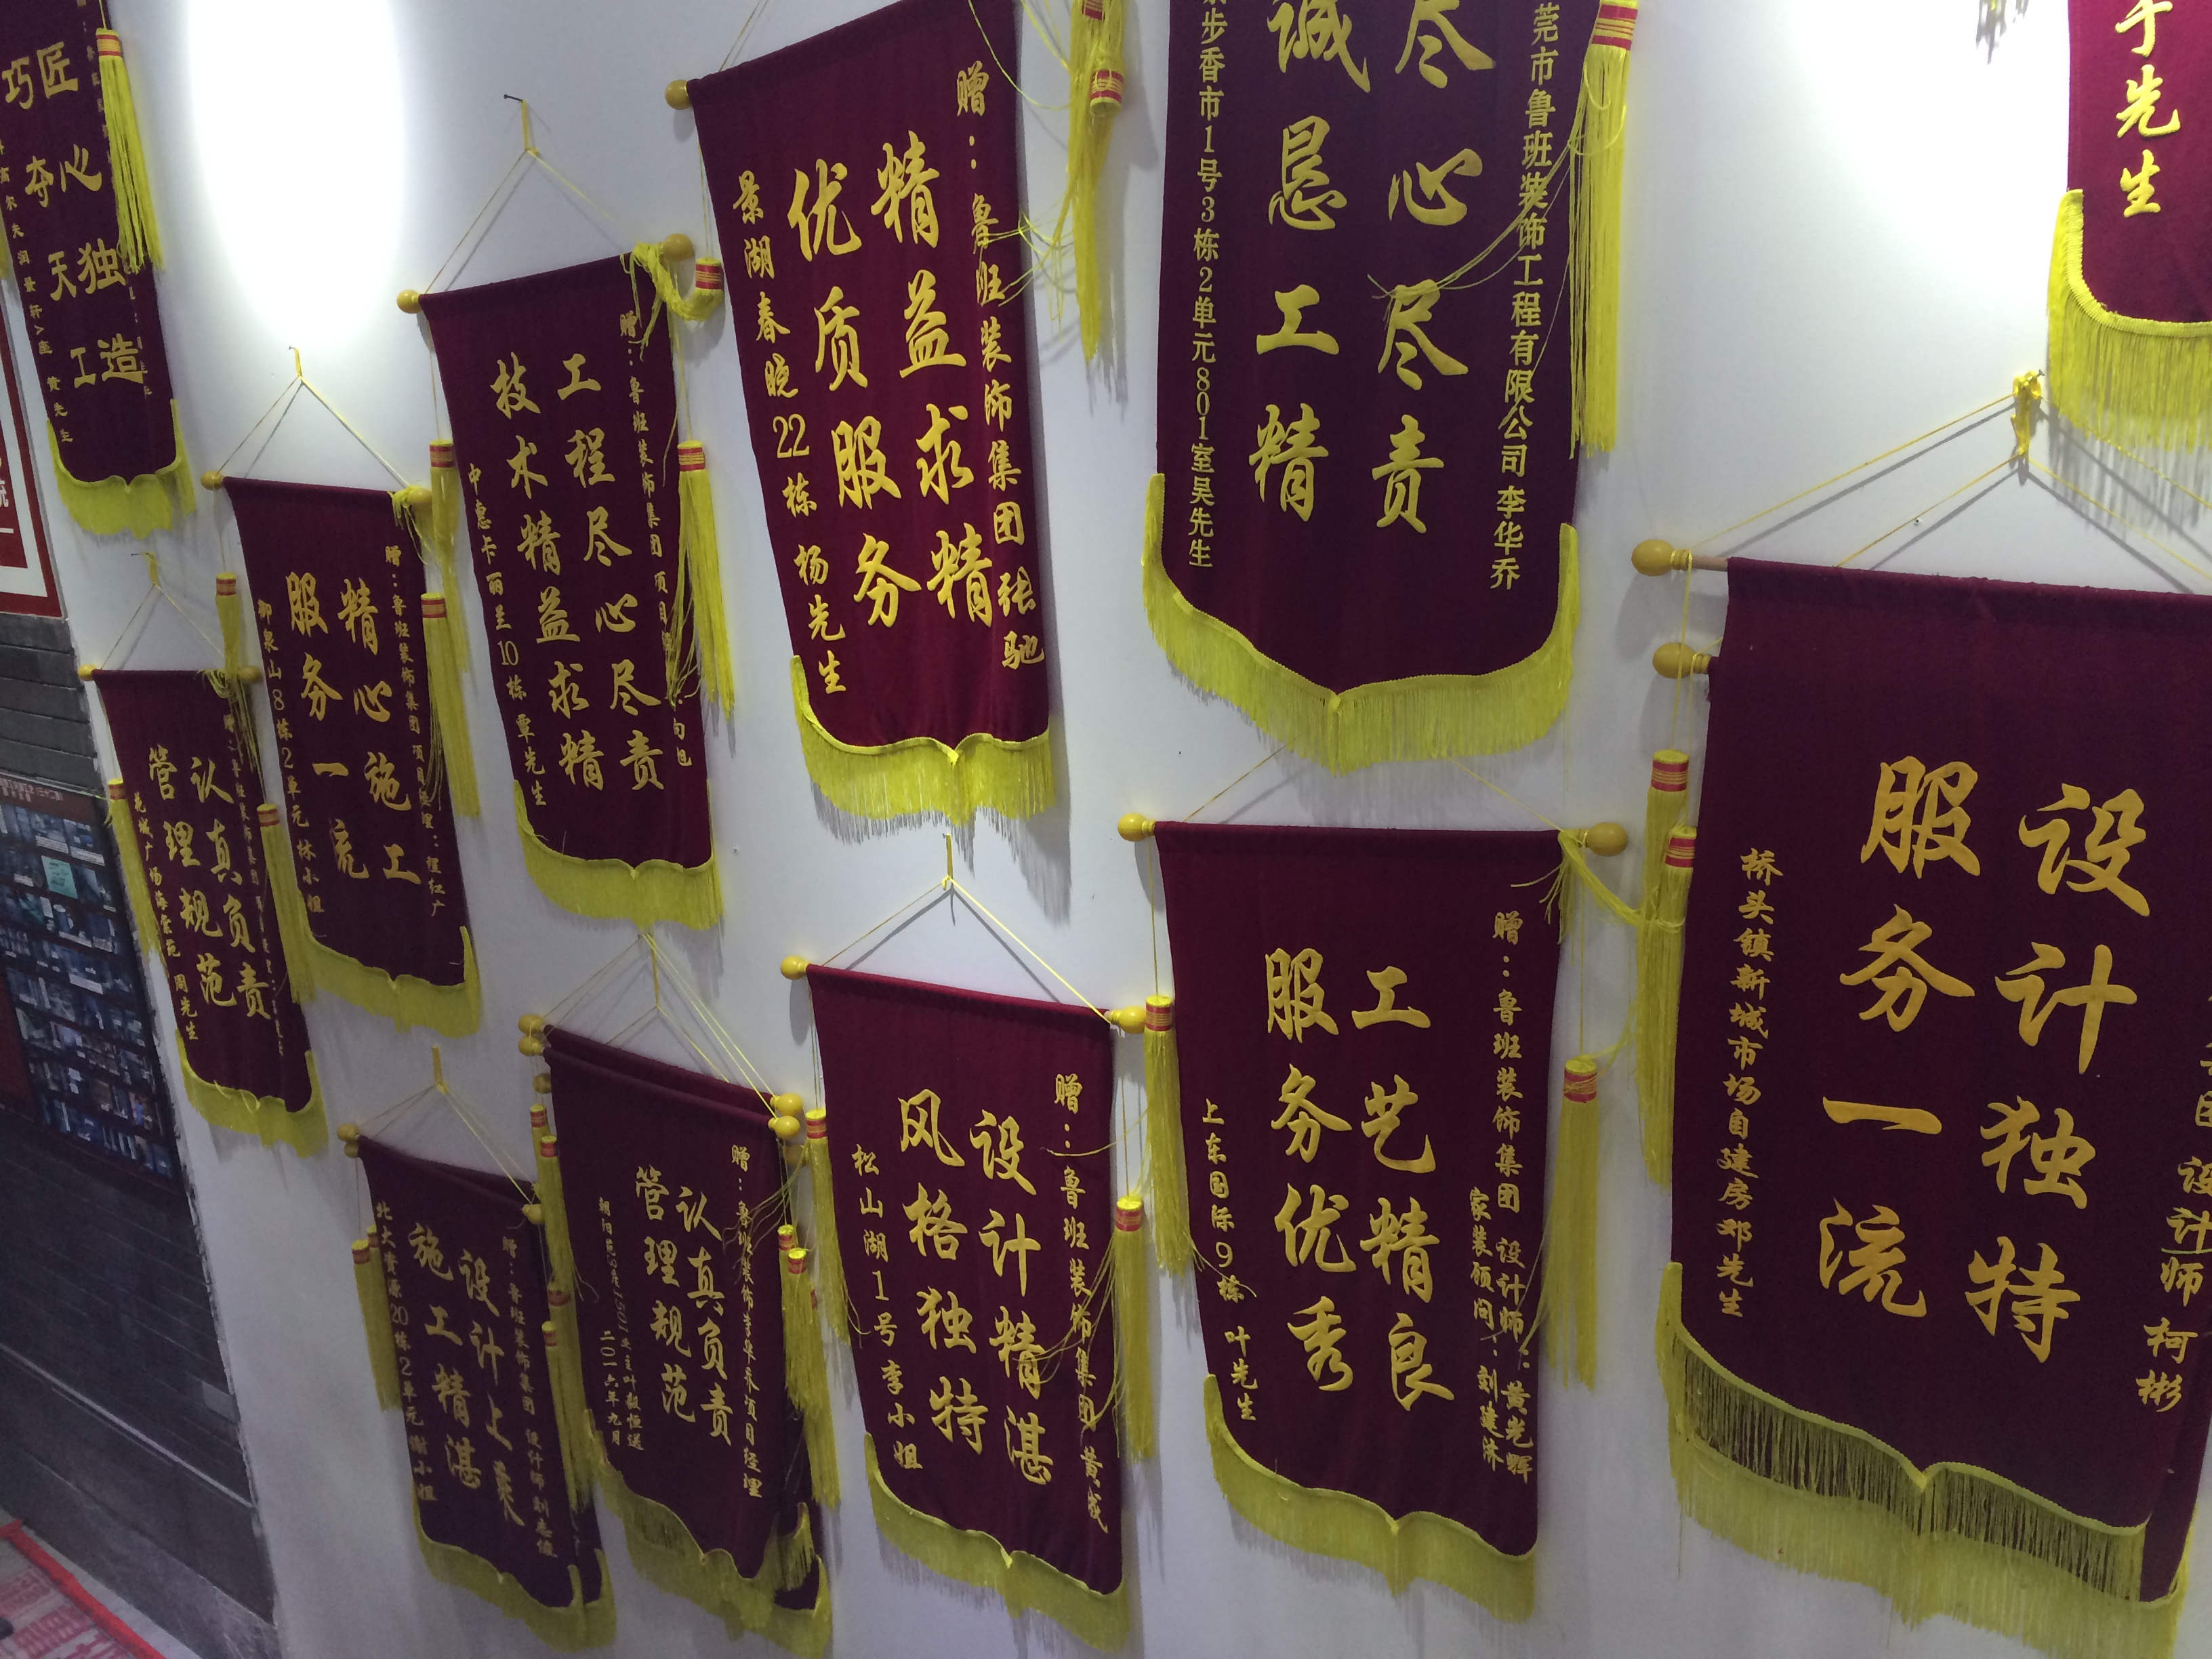 巧夺天工
匠心独造
黄先生
赠：鲁班装饰集团
精益求精
优质服务
景湖春晓22栋 杨先生
张驰
莞市鲁班装饰工程有限公司 李华乔
尽心尽责
诚恳工精
步香市1号3栋2单元801室吴先生
手先生
赠：鲁班装饰集团
工程尽心尽责
技术精益求精
中惠卡丽兰10栋 覃先生
赠：鲁班装饰集团 项目经理：程红广
精心施工
服务一流
御泉山8栋2单元 林小姐
认真负责
管理规范
花城广场海棠苑 周先生
设计师 柯彬
设计独特
服务一流
桥头镇新城市场自建房邓先生
赠：鲁班装饰集团 设计师：黄光辉
家装顾问：刘建济
工艺精良
服务优秀
上东国际9栋 叶先生
赠：鲁班装饰集团 黄成
设计精湛
风格独特
松山湖1号李小姐
赠：鲁班装饰李华乔项目经理
认真负责
管理规范
二〇一六年九月
赠：鲁班装饰集团 设计师刘志雄
设计上乘
施工精湛
北大资源20栋2单元谢小姐